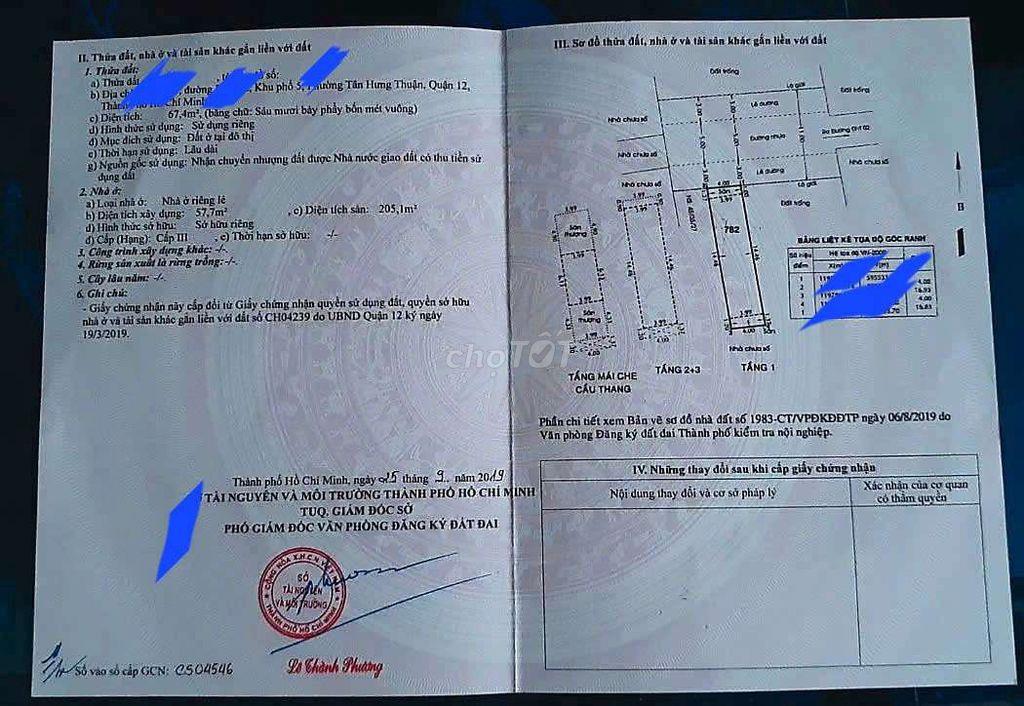 II. Thửa đất, nhà ở và tài sản khác gắn liền với đất
1. Thửa đất:
a) Thửa đất số:
b) Địa ch đường Khu phố 5, Phường Tân Hưng Thuận, Quận 12,
Thành Hồ Chí Minh
c) Diện tích: 67,4m², (bằng chữ: Sáu mươi bảy phẩy bốn mét vuông)
d) Hình thức sử dụng: Sử dụng riêng
đ) Mục đích sử dụng: Đất ở tại đô thị
e) Thời hạn sử dụng: Lâu dài
g) Nguồn gốc sử dụng: Nhận chuyển nhượng đất được Nhà nước giao đất có thu tiền sử
dụng đất
2. Nhà ở:
a) Loại nhà ở: Nhà ở riêng lẻ
b) Diện tích xây dựng: 57,7m² , c) Diện tích sàn: 205,1m²
d) Hình thức sở hữu: Sở hữu riêng
đ) Cấp (Hạng): Cấp III , e) Thời hạn sở hữu: -/-
3. Công trình xây dựng khác: -/-
4. Rừng sản xuất là rừng trồng: -/-
5. Cây lâu năm: -/-
6. Ghi chú:
- Giấy chứng nhận này cấp đổi từ Giấy chứng nhận quyền sử dụng đất, quyền sở hữu
nhà ở và tài sản khác gắn liền với đất số CH04239 do UBND Quận 12 ký ngày
19/3/2019.
Thành phố Hồ Chí Minh, ngày 25 tháng 9 năm 2019
TÀI NGUYÊN VÀ MÔI TRƯỜNG THÀNH PHỐ HỒ CHÍ MINH
TUQ. GIÁM ĐỐC SỞ
PHÓ GIÁM ĐỐC VĂN PHÒNG ĐĂNG KÝ ĐẤT ĐAI
CỘNG HÒA X.H.C.N VIỆT NAM
SỞ
TÀI NGUYÊN
VÀ MÔI TRƯỜNG
THÀNH PHỐ HỒ CHÍ MINH
Lê Thành Phương
Số vào sổ cấp GCN: CS04546
III. Sơ đồ thửa đất, nhà ở và tài sản khác gắn liền với đất
Đất trống
Lộ giới
Đất trống
Nhà chưa số
Lề đường
Đường nhựa
Ra Đường ĐHT 02
Nhà chưa số
Lề đường
Nhà chưa số
Nhà chưa số
Lộ giới
Đất trống
4.00
Sân
3.99
782
B
3.99
Sân
thượng
3.99
Sân
thượng
4.00
3.99
3.99
4.00
3.99
4.00
Sân
Nhà chưa số
TẦNG MÁI CHE
CẦU THANG
TẦNG 2+3
TẦNG 1
BẢNG LIỆT KÊ TỌA ĐỘ GÓC RANH
Số hiệu
điểm
Hệ tọa độ VN-2000
1
2
3
4
4.00
16.93
4.00
16.83
chợTỐT
Phần chi tiết xem Bản vẽ sơ đồ nhà đất số 1983-CT/VPĐKĐĐTP ngày 06/8/2019 do
Văn phòng Đăng ký đất đai Thành phố kiểm tra nội nghiệp.
IV. Những thay đổi sau khi cấp giấy chứng nhận
Nội dung thay đổi và cơ sở pháp lý
Xác nhận của cơ quan
có thẩm quyền